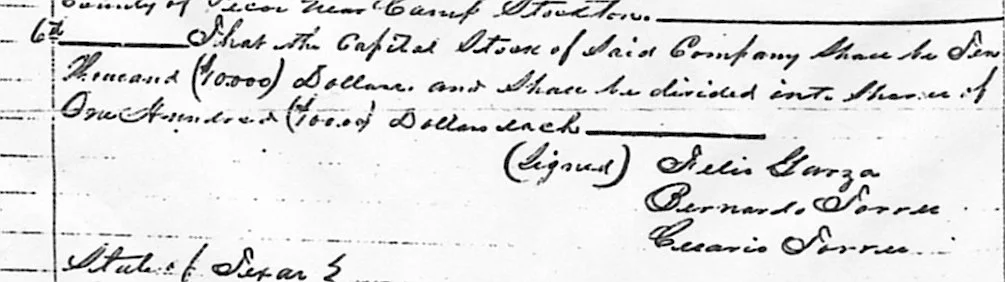 County of Pecos near Camp Stockton.
6th That the Capital Stock of Said Company Shall be Ten
Thousand ($10.000) Dollars. and Shall be divided into Shares of
One Hundred ($100.00) Dollars each
(Signed) Felis Garza
Bernardo Torres
Cesario Torres
State of Texas }